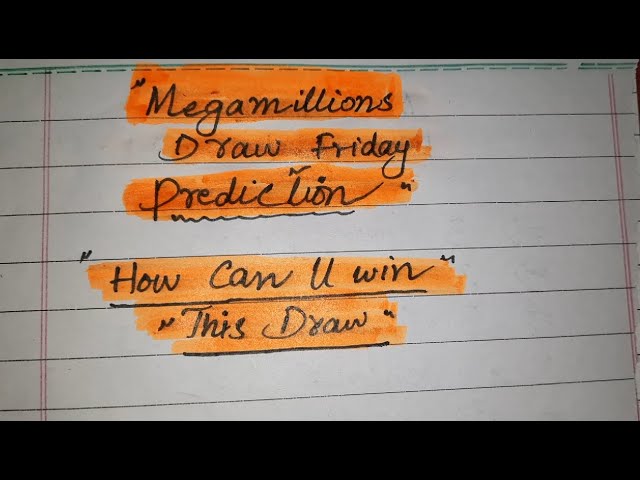 "Megamillions
Draw Friday
Prediction"
"How Can U win"
"This Draw"